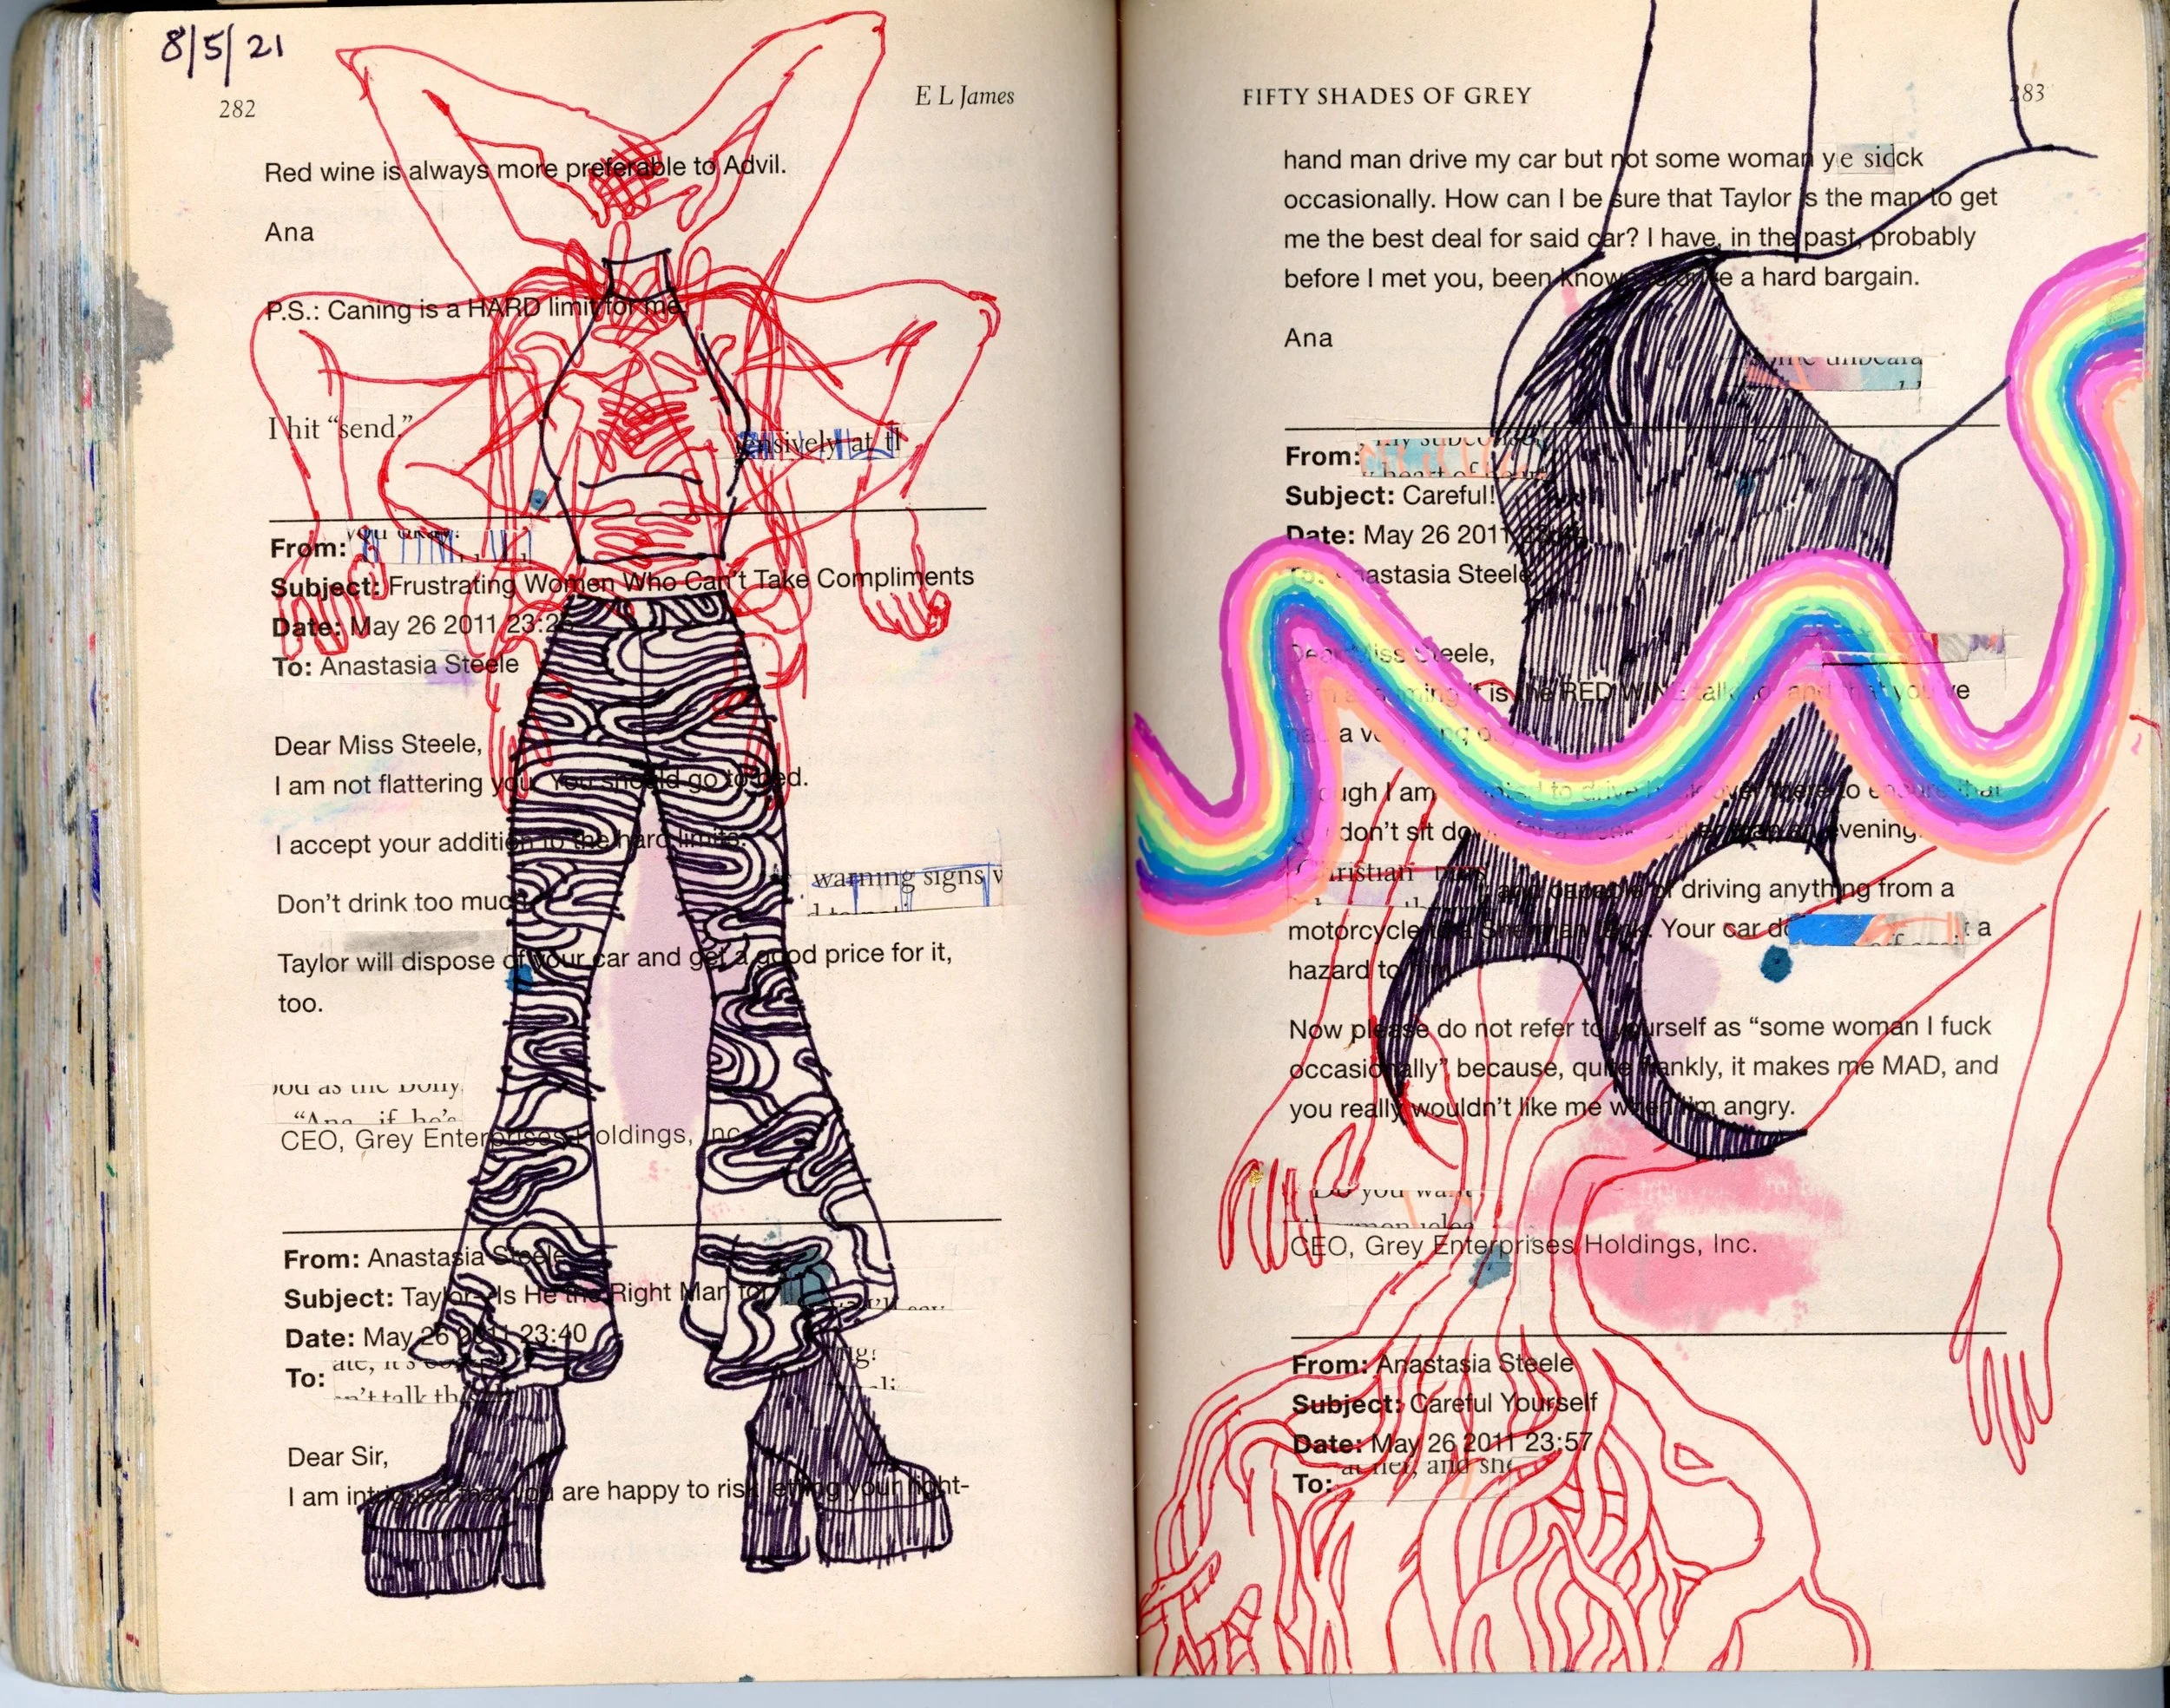 8/5/21
282
E L James
Red wine is always more preferable to Advil.
Ana
P.S.: Caning is a HARD limit for me.
I hit “send.”
ensively at th
you okay?
From:
Subject: Frustrating Women Who Can’t Take Compliments
Date: May 26 2011 23:26
To: Anastasia Steele
Dear Miss Steele,
I am not flattering you. You should go to bed.
I accept your addition to the hard limits.
warning signs
Don’t drink too much.
Taylor will dispose of your car and get a good price for it,
too.
“Ana if he’s
CEO, Grey Enterprises Holdings, Inc.
From: Anastasia Steele
Subject: Taylor—Is He the Right Man for
Date: May 26 2011 23:40
To:
Dear Sir,
I am intrigued that you are happy to risk letting your right-
FIFTY SHADES OF GREY
283
hand man drive my car but not some woman
occasionally. How can I be sure that Taylor is the man to get
me the best deal for said car? I have, in the past, probably
before I met you, been known to drive a hard bargain.
Ana
From:
Subject: Careful!
Date: May 26 2011
To: Anastasia Steele
Dear Miss Steele,
I am assuming it is the RED WINE talking, and that you’ve
had a very long day.
Though I am tempted to drive back over there to ensure that
you don’t sit down for a week, rather than an evening.
Christian
and capable of driving anything from a
motorcycle to a Sherman tank. Your car a
hazard to him.
Now please do not refer to yourself as “some woman I fuck
occasionally” because, quite frankly, it makes me MAD, and
you really wouldn’t like me when I’m angry.
Do you want
CEO, Grey Enterprises Holdings, Inc.
From: Anastasia Steele
Subject: Careful Yourself
Date: May 26 2011 23:57
To: at her, and she